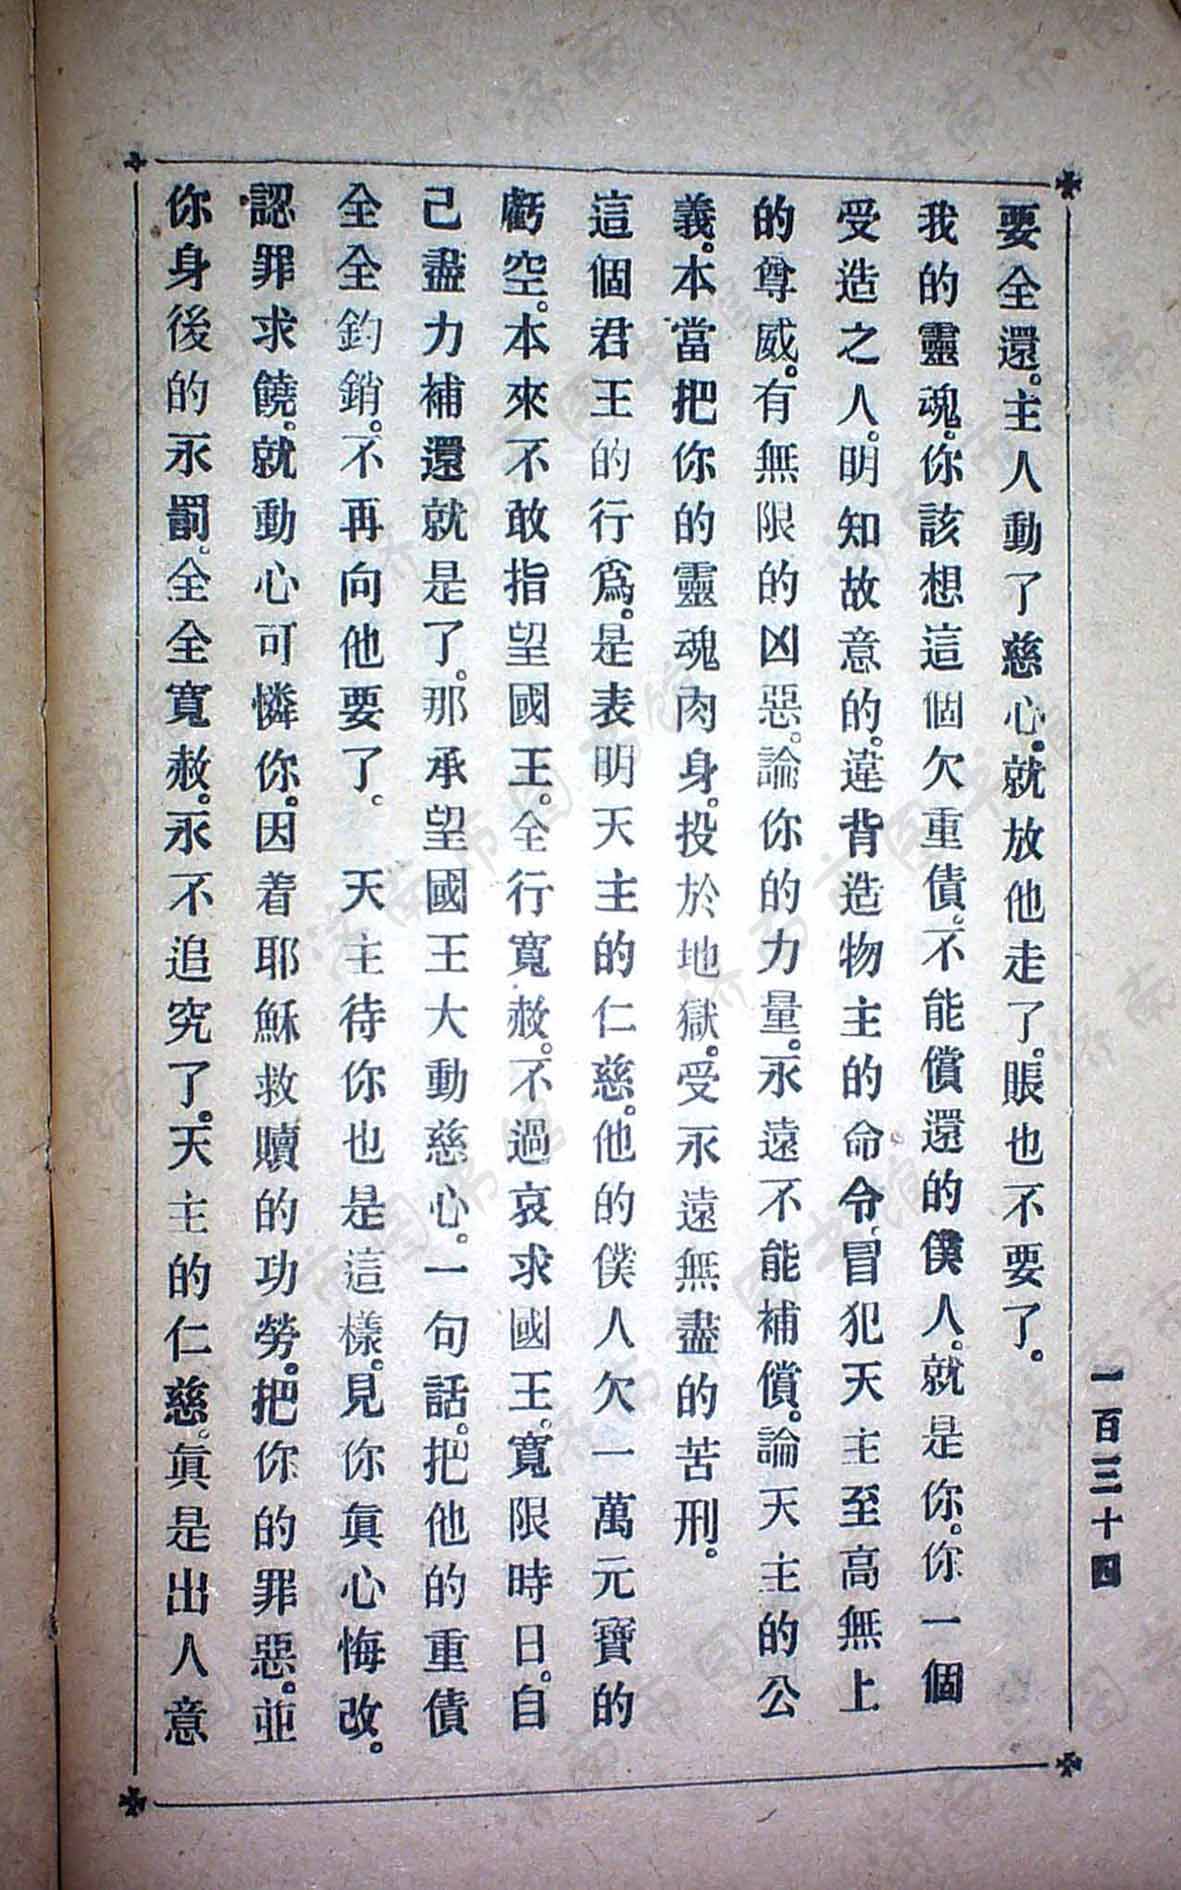 一百三十四
要全還。主人動了慈心。就放他走了。賬也不要了。
我的靈魂。你該想這個欠重債。不能償還的僕人。就是你。你一個
受造之人。明知故意的。違背造物主的命令。冒犯天主至高無上
的尊威。有無限的凶惡。論你的力量。永遠不能補償。論天主的公
義。本當把你的靈魂肉身。投於地獄。受永遠無盡的苦刑。
這個君王的行爲。是表明天主的仁慈。他的僕人欠一萬元寶的
虧空。本來不敢指望國王。全行寬赦。不過哀求國王。寬限時日。自
己盡力補還就是了。那承望國王大動慈心。一句話。把他的重債
全全鈞銷。不再向他要了。 天主待你也是這樣。見你眞心悔改。
認罪求饒。就動心可憐你。因着耶穌救贖的功勞。把你的罪惡。並
你身後的永罰。全全寬赦。永不追究了。天主的仁慈。眞是出人意